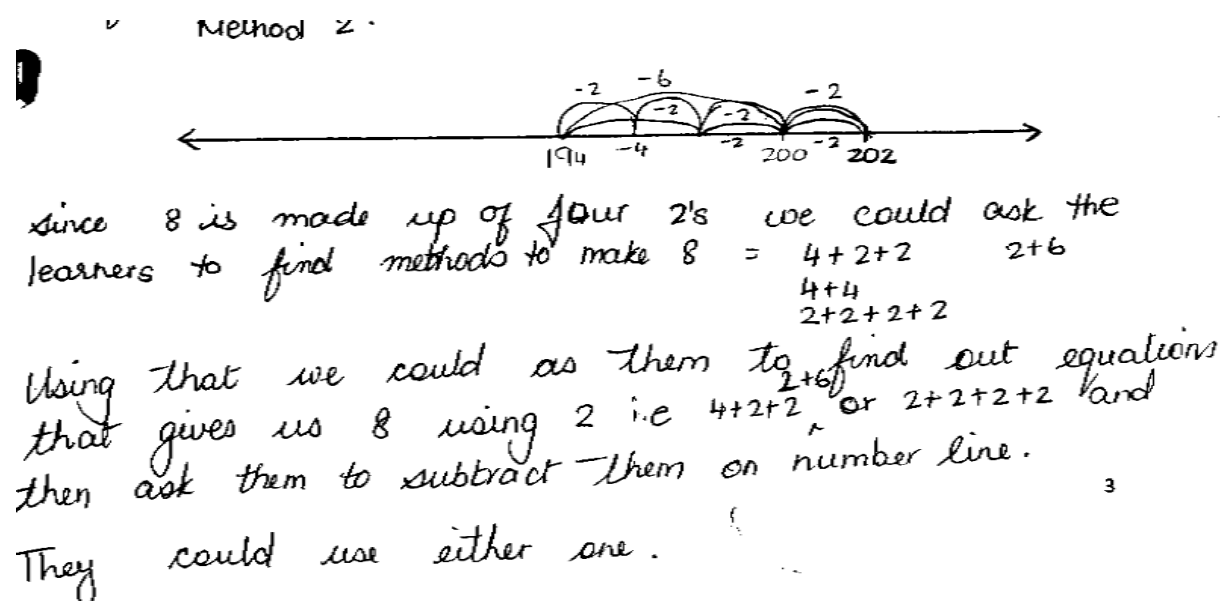 Method 2.
-2 -6 -2
-2 -2
194 -4 -2 200 -2 202
since 8 is made up of four 2's we could ask the
learners to find methods to make 8 = 4+2+2 2+6
4+4
2+2+2+2
Using that we could as them to find out equations
that gives us 8 using 2 i.e 4+2+2 2+6 or 2+2+2+2 and
then ask them to subtract them on number line.
3
They could use either one.